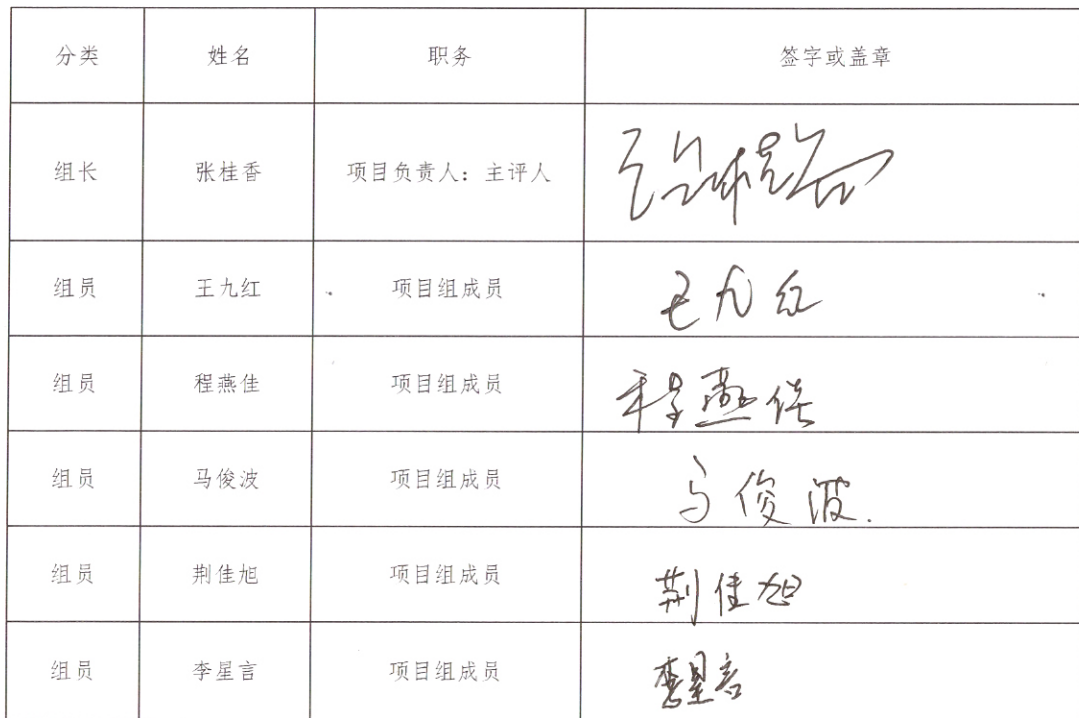 分类 姓名 职务 签字或盖章
组长 张桂香 项目负责人：主评人 张桂香
组员 王九红 项目组成员 王九红
组员 程燕佳 项目组成员 程燕佳
组员 马俊波 项目组成员 马俊波.
组员 荆佳旭 项目组成员 荆佳旭
组员 李星言 项目组成员 李星言